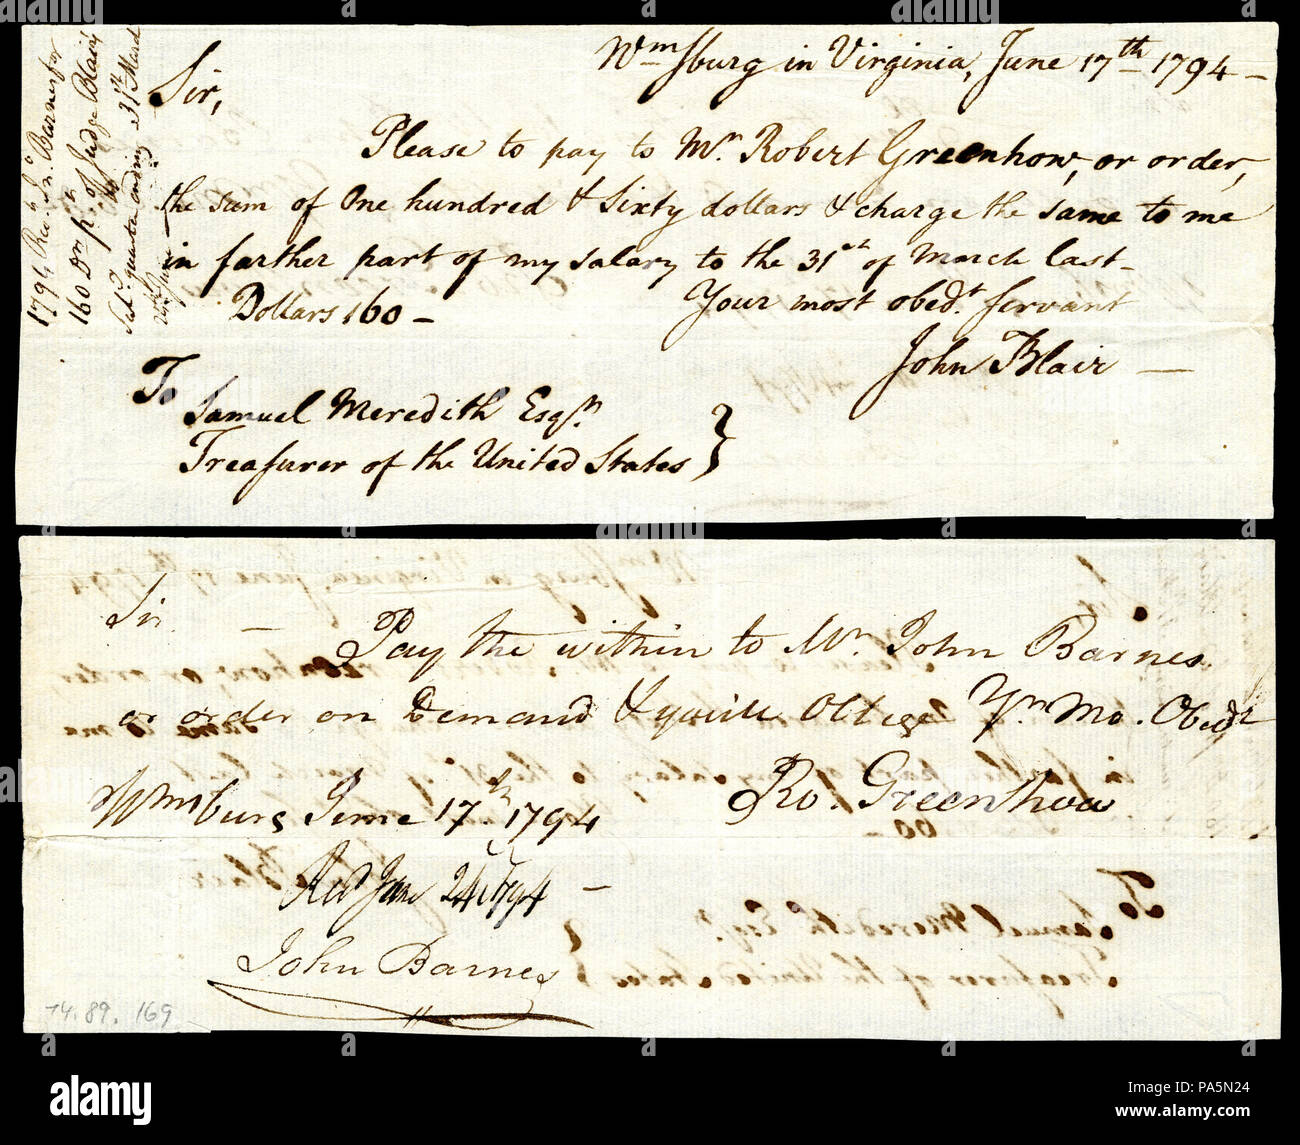 Wmsburg in Virginia, June 17th 1794 –
Sir,
Please to pay to Mr. Robert Greenhow, or order,
the sum of One hundred & Sixty dollars & charge the same to me
in farther part of my salary to the 31st of March last–
Dollars 160 –
Your most obedt. servant
John Blair —
To
Samuel Meredith Esqr.
Treasurer of the United States
1794 Jno. Barnes for
160 Drs. pt. of Judge Blair's
quarter ending 31st March
Sir. —
Pay the within to Mr. John Barnes
or order on Demand & youill Oblige Yr. Mo. Obedt
Ro. Greenhow
Wmsburg June 17th. 1794
Recd June 24th 1794 –
John Barnes
74. 89. 169
alamy
Image ID: PA5N24
www.alamy.com